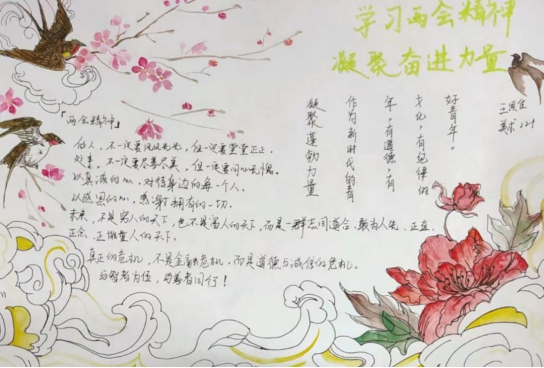 学习两会精神
凝聚奋进力量
「两会精神」
做人，不一定要风风光光，但一定要堂堂正正。
处事，不一定要尽善尽美，但一定要问心无愧。
以真诚的心，对待身边的每一个人。
以感恩的心，感谢拥有的一切。
未来，不是穷人的天下，也不是富人的天下，而是一群志同道合、敢为人先、正直、
正念、正能量人的天下。
真正的危机，不是金融危机，而是道德与诚信的危机。
与智者为伍，与善者同行！
好青年。
文化，有纪律的
年，有道德，有
作为新时代的青
凝聚蓬勃力量
美术